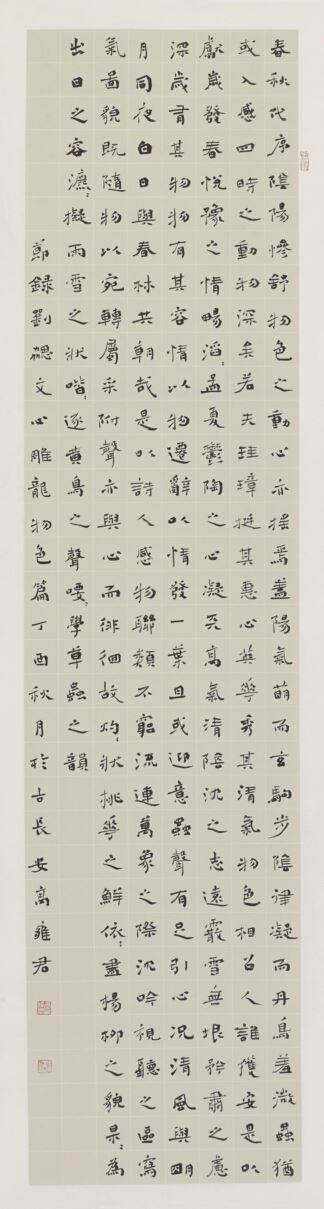 春秋代序陰陽慘舒物色之動心亦搖焉蓋陽氣萌而玄駒步陰律凝而丹鳥羞微蟲猶
或入感四時之動物深矣若夫珪璋挺其惠心英華秀其清氣物色相召人誰獲安是以
獻歲發春悅豫之情暢滔〻孟夏鬱陶之心凝天高氣清陰沈之志遠霰雪無垠矜肅之慮
深歲有其物物有其容情以物遷辭以情發一葉且或迎意蟲聲有足引心況清風與明
月同夜白日與春林共朝哉是以詩人感物聯類不窮流連萬象之際沈吟視聽之區寫
氣圖貌既隨物以宛轉屬采附聲亦與心而徘徊故灼〻狀桃華之鮮依〻盡楊柳之貌杲〻為
出日之容瀌〻擬雨雪之狀喈〻逐黃鳥之聲喓〻學草蟲之韻
節錄劉勰文心雕龍物色篇丁酉秋月於古長安高雍君